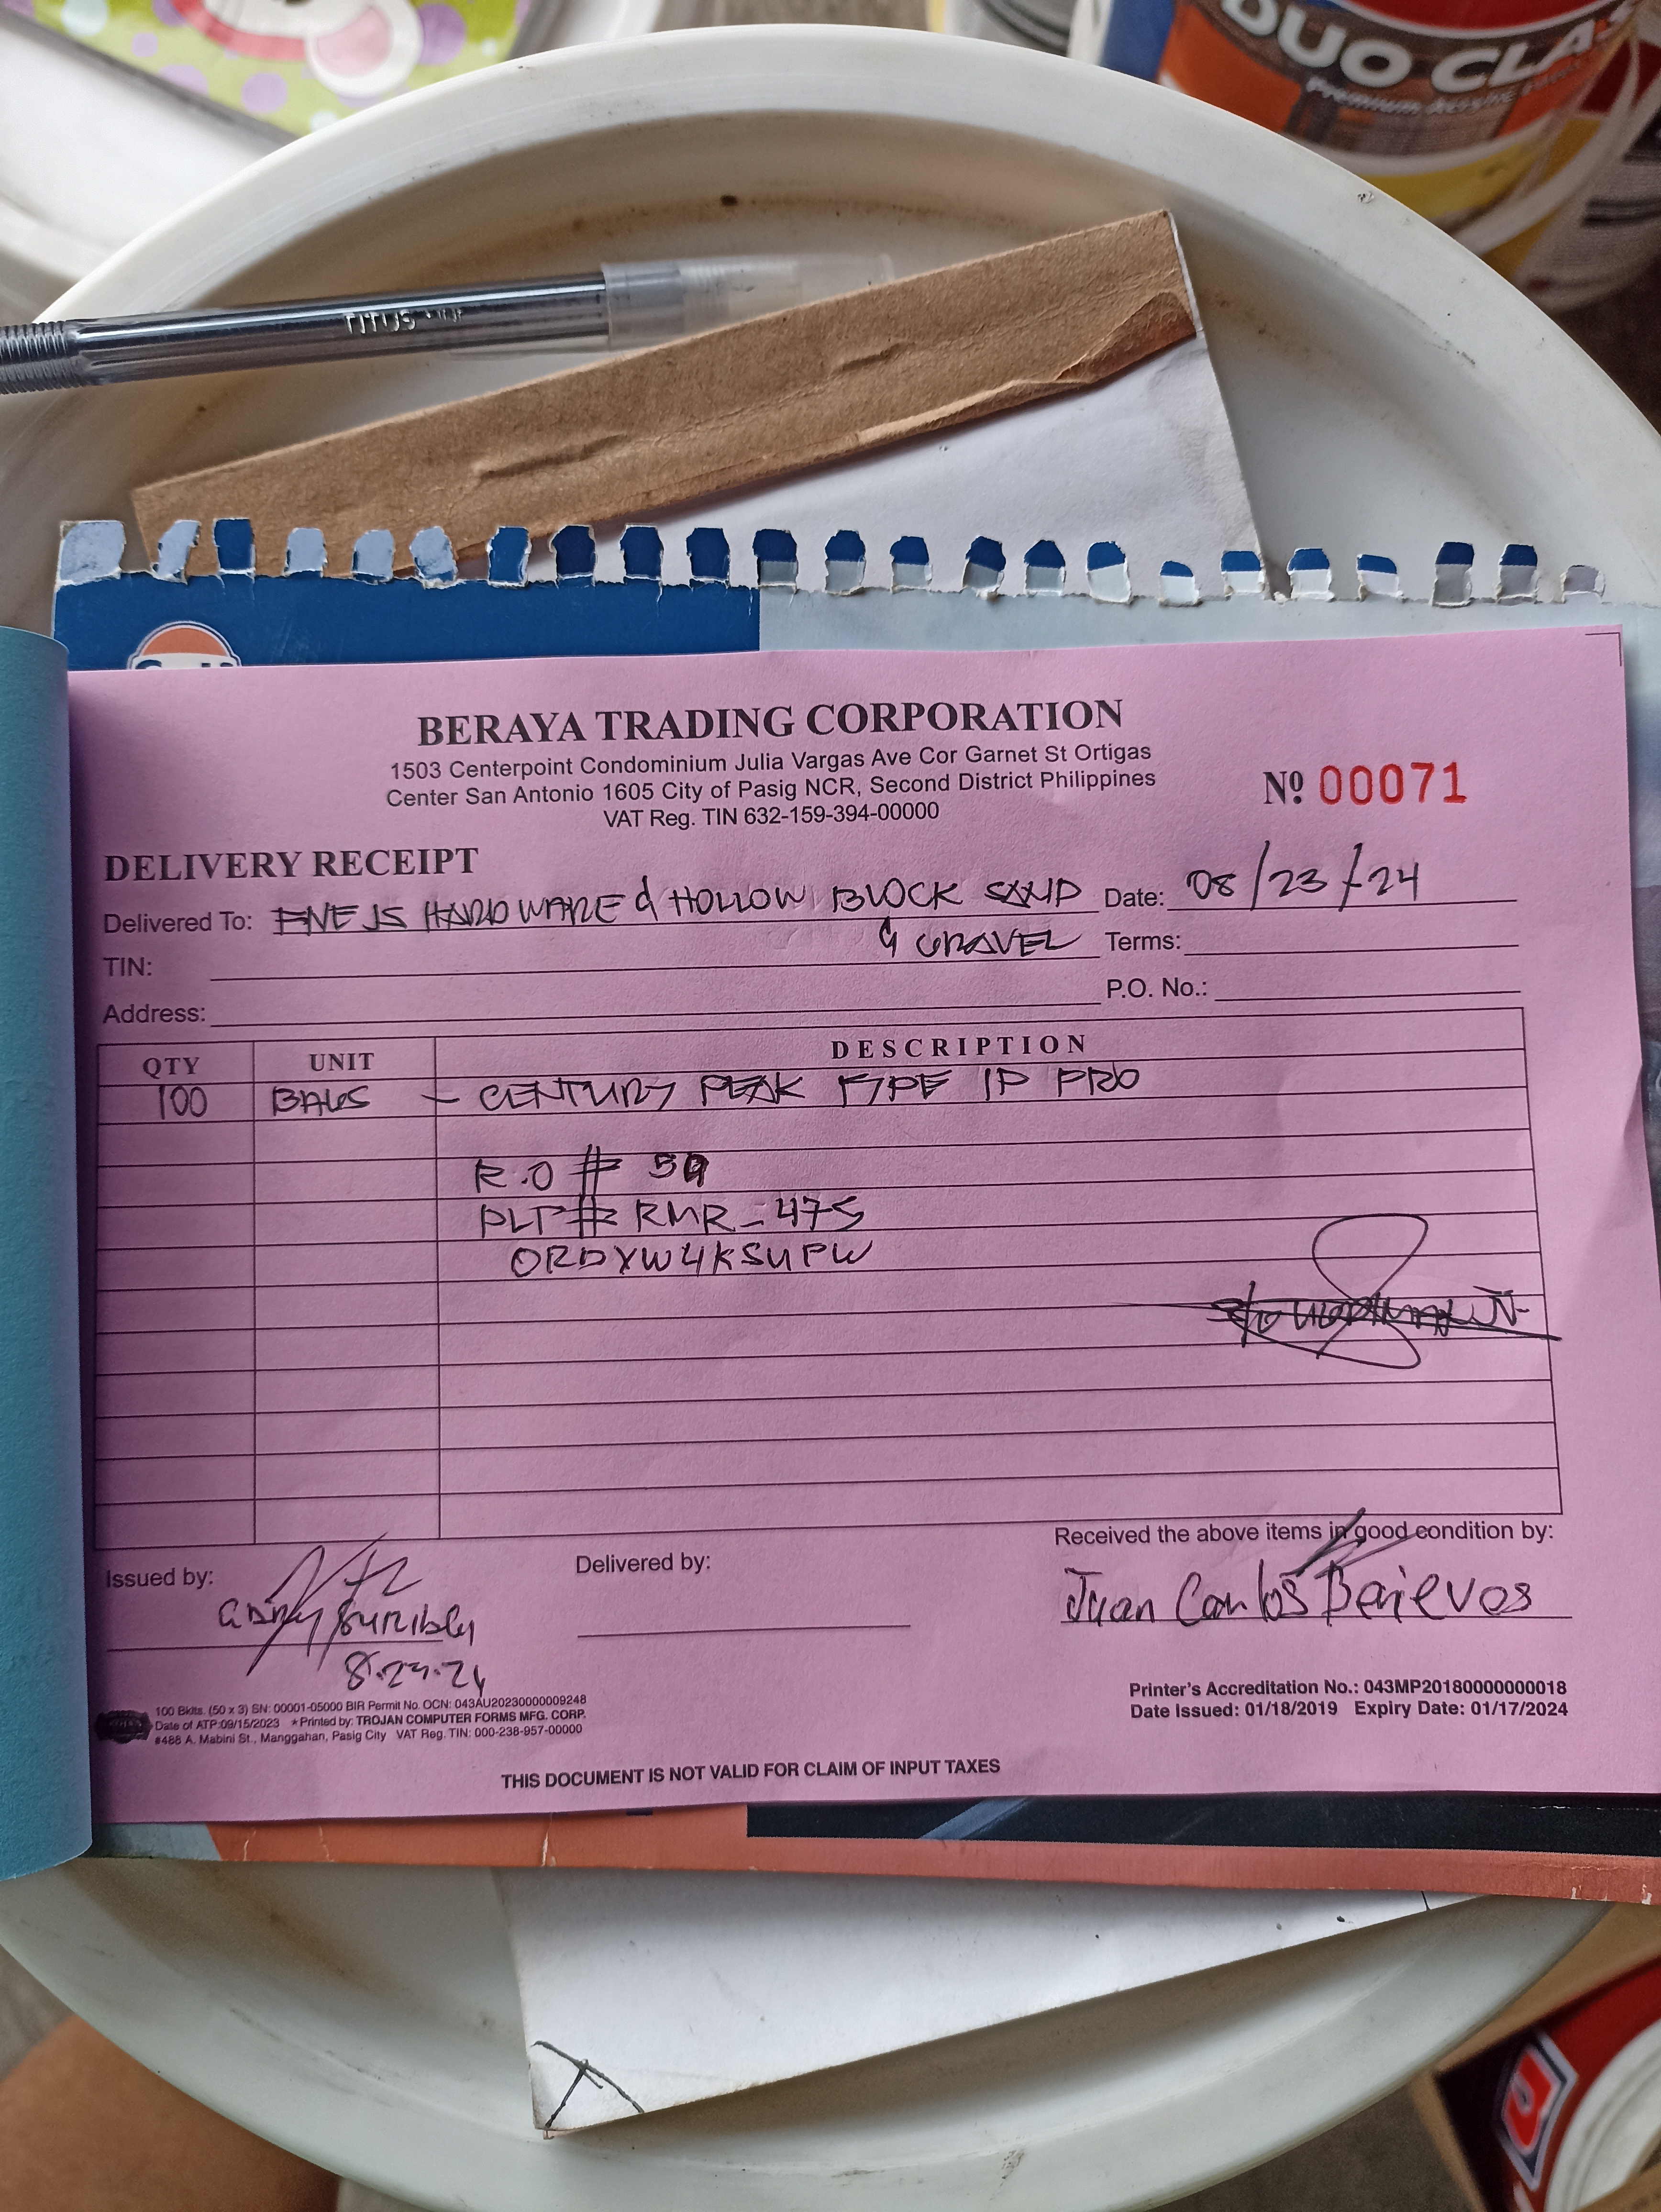 DUO CLAS
Premium Acrylic
TITUS
BERAYA TRADING CORPORATION
1503 Centerpoint Condominium Julia Vargas Ave Cor Garnet St Ortigas
Center San Antonio 1605 City of Pasig NCR, Second District Philippines
VAT Reg. TIN 632-159-394-00000
Nº 00071
DELIVERY RECEIPT
Delivered To: ENEJS HARDWARE & HOLLOW BLOCK SAND Date: 08/23/24
& GRAVEL Terms:
TIN:
P.O. No.:
Address:
QTY UNIT DESCRIPTION
100 BAGS - CENTURY PEAK TYPE 1P PRO
R.O # 59
PLT# RMR-475
ORDYW4KSUPW
Received the above items in good condition by:
Issued by: Delivered by:
Juan Carlos
8.23.24
100 Bklts. (50 x 3) SN: 00001-05000 BIR Permit No. OCN: 043AU20230000009248
Date of ATP:09/15/2023 *Printed by: TROJAN COMPUTER FORMS MFG. CORP.
#488 A. Mabini St., Manggahan, Pasig City VAT Reg. TIN: 000-238-957-00000
Printer's Accreditation No.: 043MP20180000000018
Date Issued: 01/18/2019 Expiry Date: 01/17/2024
THIS DOCUMENT IS NOT VALID FOR CLAIM OF INPUT TAXES